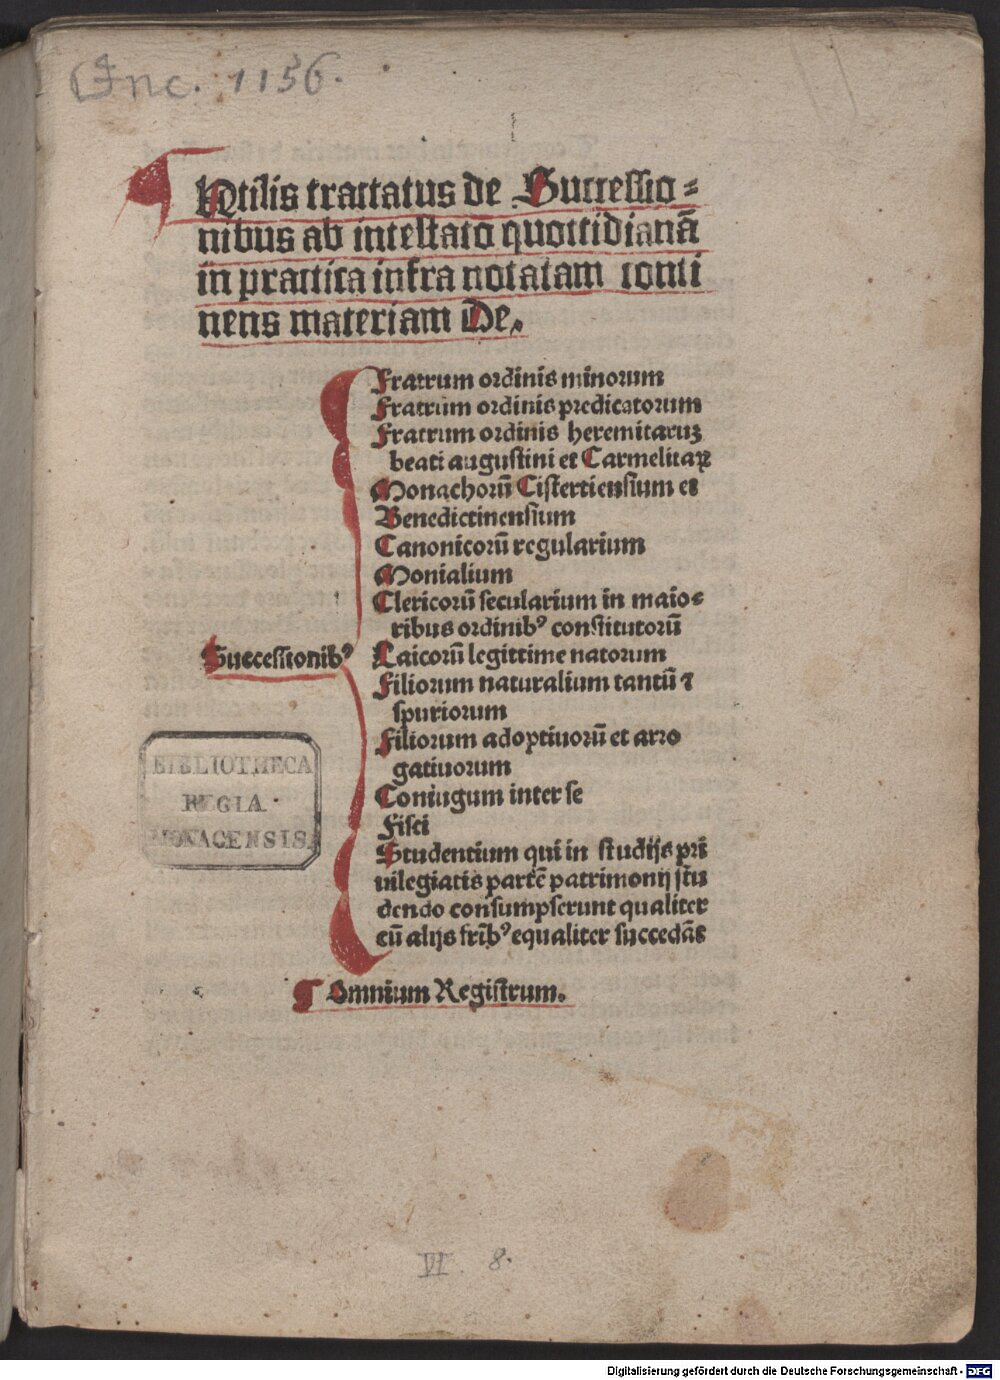 Inc. 1156.
Utilis tractatus de Successio⸗
nibus ab intestato quottidianā
in practica infra notatam conti
nens materiam De.
Fratrum ordinis minorum
Fratrum ordinis predicatorum
Fratrum ordinis heremitaruꝫ
beati augustini et Carmelitaꝝ
Monachorū Cistertiensium et
Benedictinensium
Canonicorū regularium
Monialium
Clericorū secularium in maio⸗
ribus ordinibꝰ constitutorū
Successionibꝰ
Laicorū legittime natorum
Filiorum naturalium tantū ⁊
spuriorum
Filiorum adoptiuorū et arro
gatiuorum
Coniugum inter se
Fisci
Studentium qui in studijs pri
uilegiatis partē patrimonij stu
dendo consumpserunt qualiter
cū alijs frībꝰ equaliter succedāt
¶ Omnium Registrum.
BIBLIOTHECA
REGIA
MONACENSIS.
VI 8.
Digitalisierung gefördert durch die Deutsche Forschungsgemeinschaft - DFG